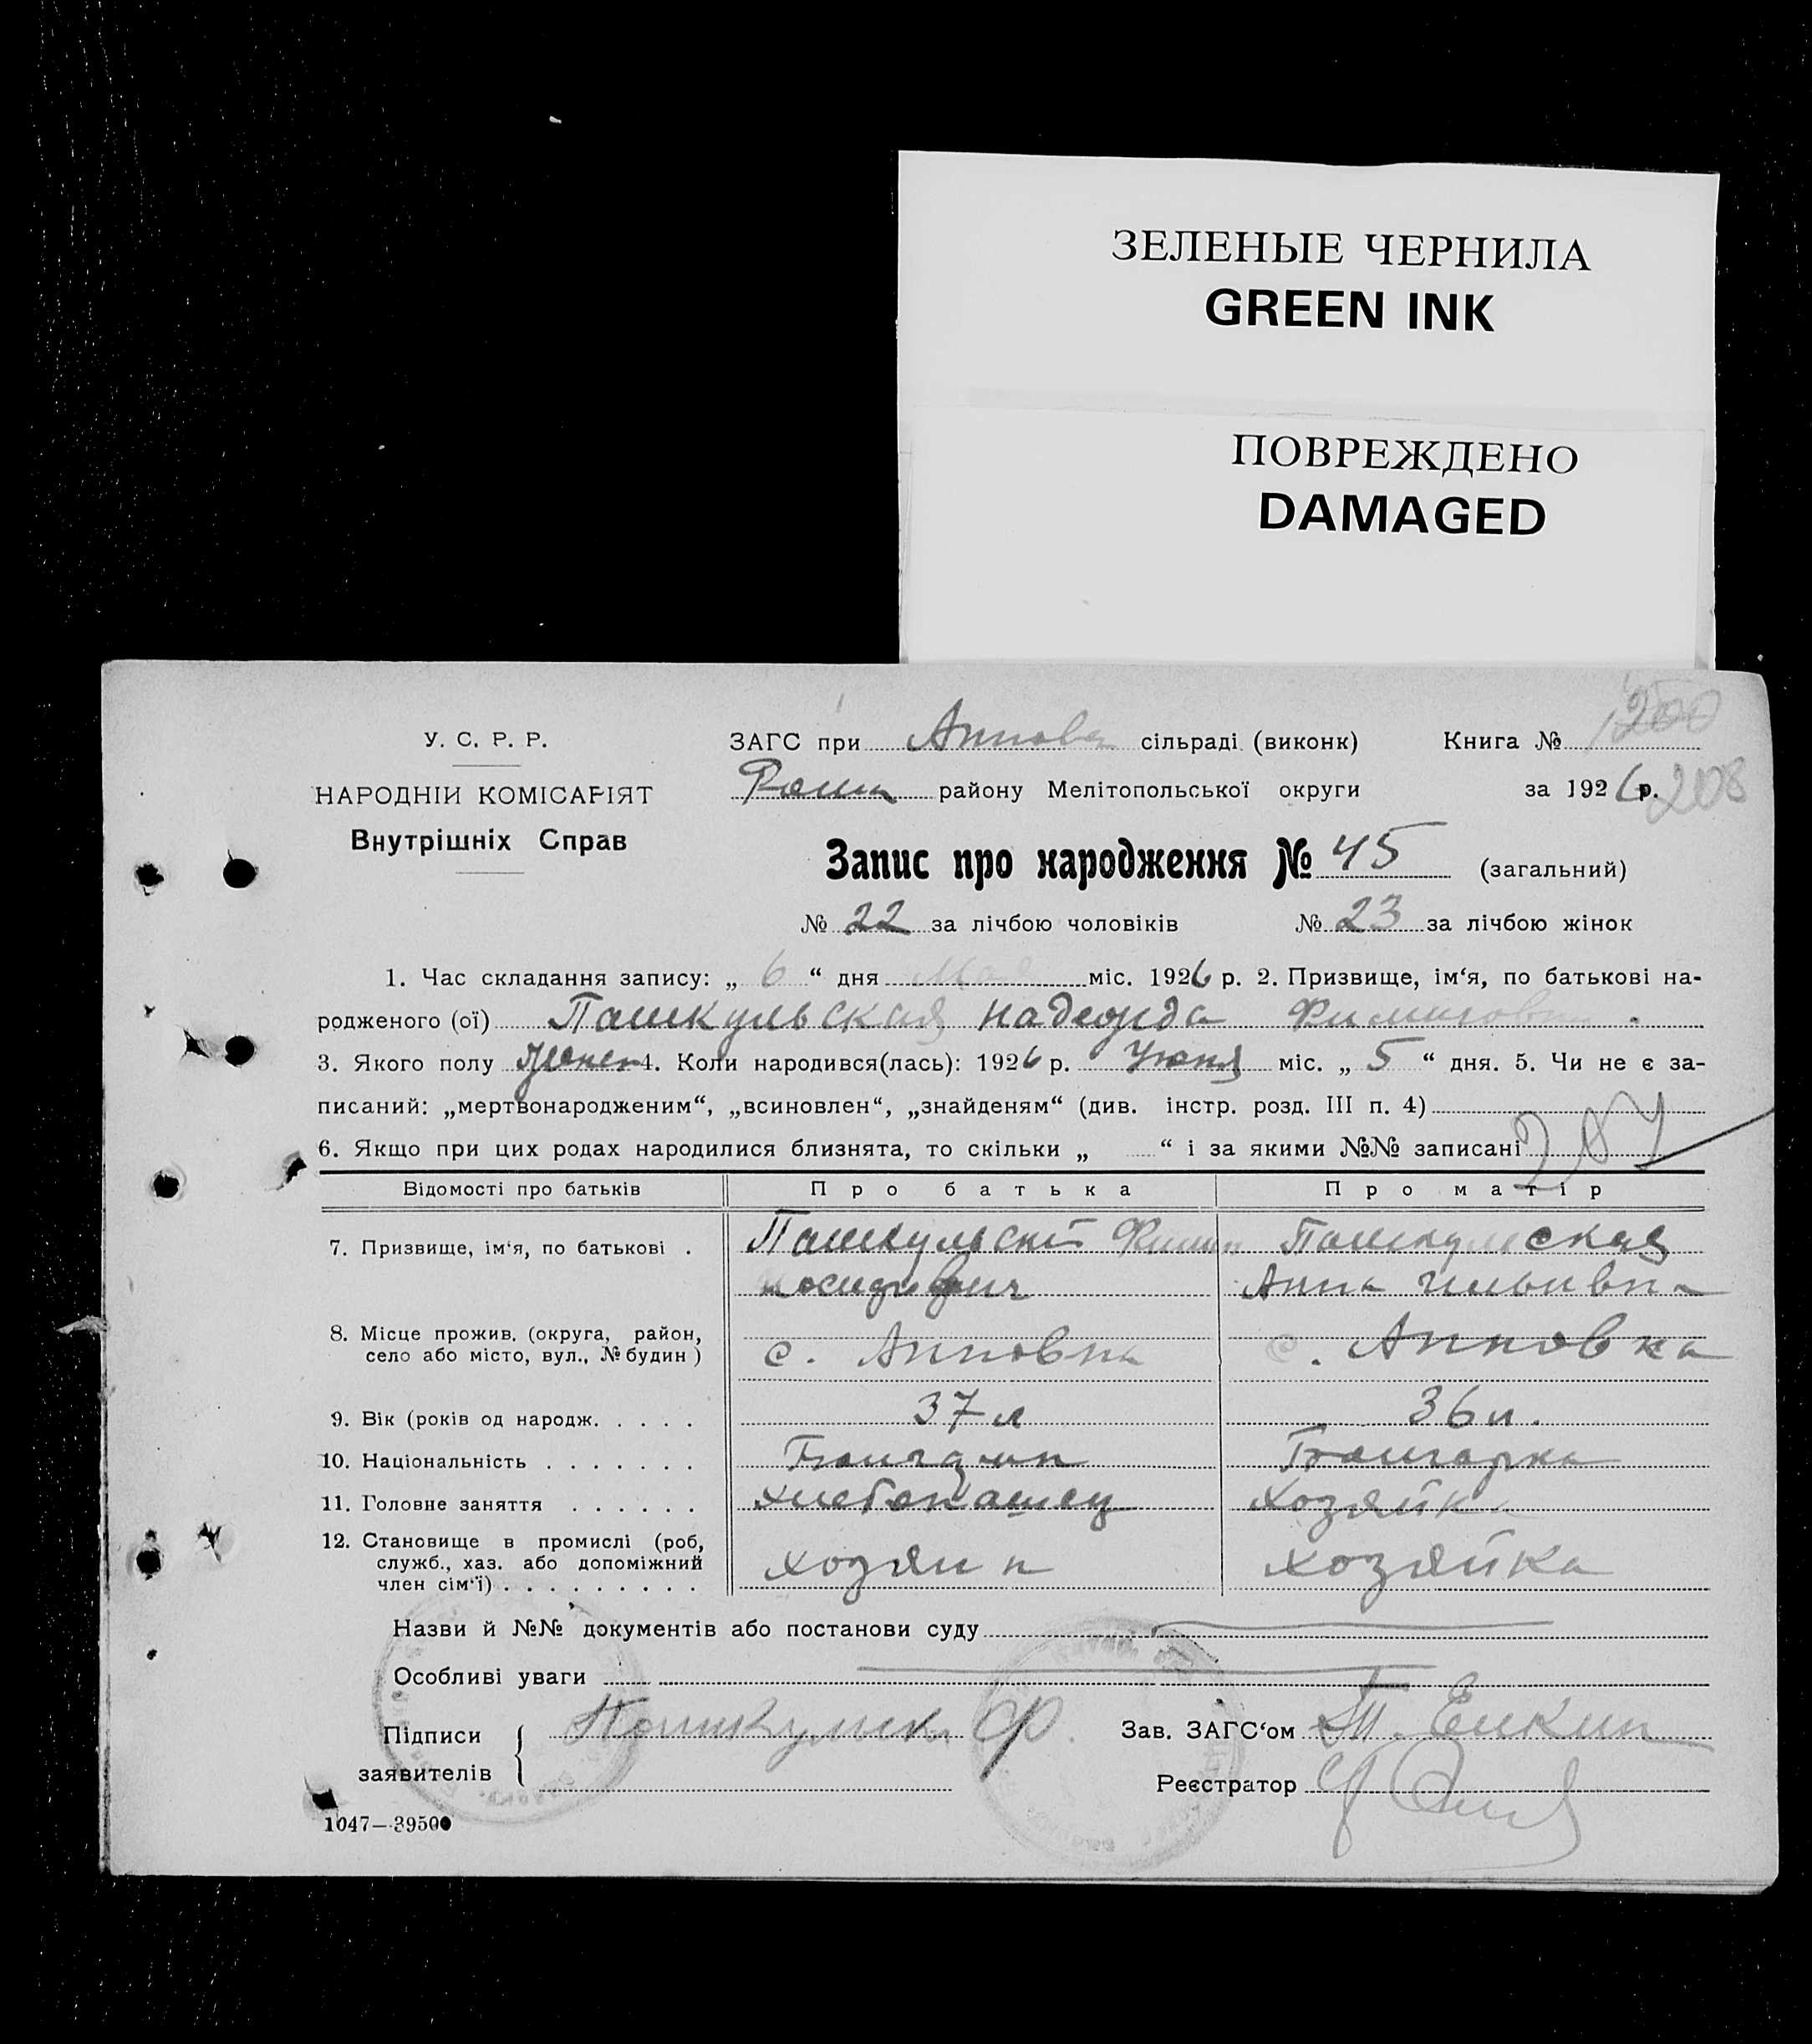 ЗЕЛЕНЫЕ ЧЕРНИЛА
GREEN INK
ПОВРЕЖДЕНО
DAMAGED
У. С. Р. Р.
НАРОДНІЙ КОМІСАРІЯТ
Внутрішніх Справ
ЗАГС при сільраді (виконк) Книга № 200
району Мелітопольської округи за 1926 р. 208
Запис про народження № 45 (загальний)
№ 22 за лічбою чоловіків № 23 за лічбою жінок
1. Час складання запису: „ 6 “ дня міс. 1926 р. 2. Призвище, ім‘я, по батькові на-
родженого (ої) Пашкульская Надежда
3. Якого полу женск 4. Коли народився(лась): 1926 р. Июня міс. „ 5 “ дня. 5. Чи не є за-
писаний: „мертвонародженим“, „всиновлен“, „знайденям“ (див. інстр. розд. III п. 4)
6. Якщо при цих родах народилися близнята, то скільки „ “ і за якими №№ записані
207
Відомості про батьків Про батька Про матір
7. Призвище, ім‘я, по батькові . Пашкульскій Филип Пашкульская
Анна
8. Місце прожив. (округа, район,
село або місто, вул., № будин ) с. Анновка с. Анновка
9. Вік (років од народж. . . . . 37 л 36 л.
10. Національність . . . . . . . Болгарин Болгарка
11. Головне заняття . . . . . . хлебопашец Хозяйка
12. Становище в промислі (роб,
служб., хаз. або допоміжний
член сім‘ї) . . . . . . . . . хозяин хозяйка
Назви й №№ документів або постанови суду
Особливі уваги
Підписи
заявителів
Ф. Зав. ЗАГС‘ом
Реєстратор
1047—39500